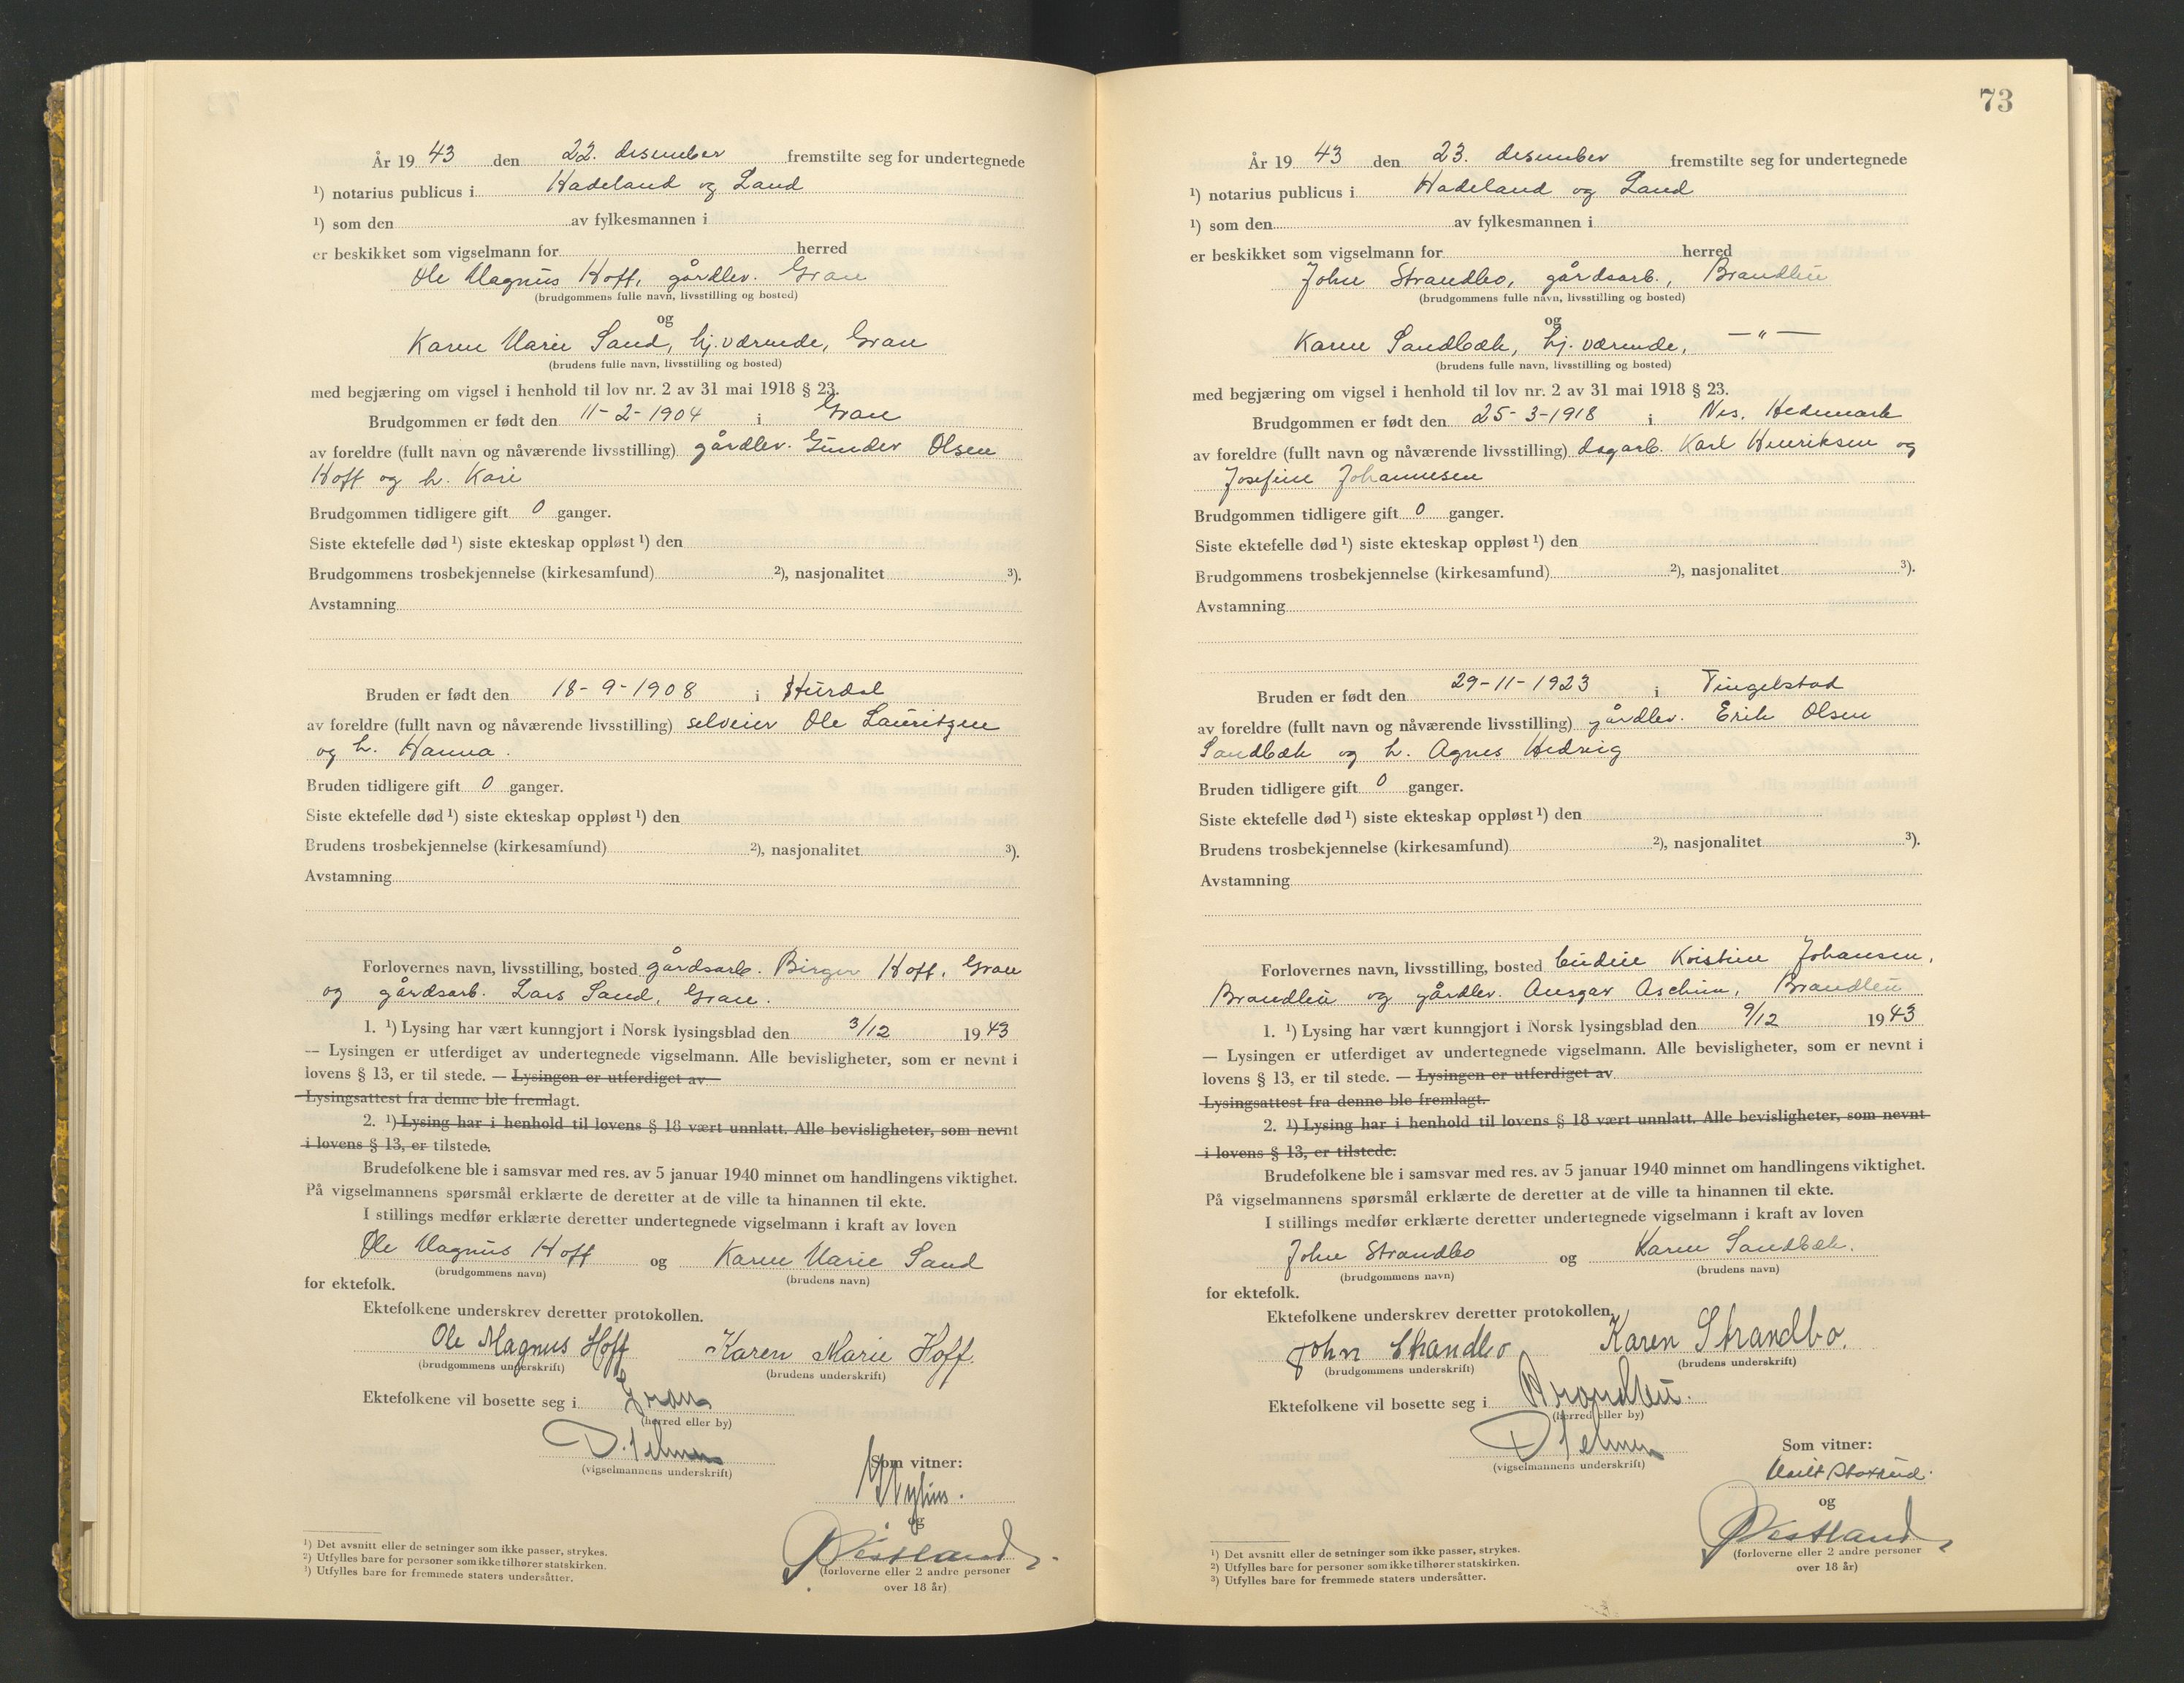 År 19 43 den 22. desember fremstilte seg for undertegnede
¹) notarius publicus i Hadeland og Land
¹) som den av fylkesmannen i
er beskikket som vigselmann for herred
Ole Magnus Hoff, gårdbr. Gran
(brudgommens fulle navn, livsstilling og bosted)
og
Karen Marie Sand, hj.værende, Gran
(brudens fulle navn, livsstilling og bosted)
med begjæring om vigsel i henhold til lov nr. 2 av 31 mai 1918 § 23.
Brudgommen er født den 11-2-1904 i Gran
av foreldre (fullt navn og nåværende livsstilling) gårdbr. Gunder Olsen
Hoff og h. Kari
Brudgommen tidligere gift 0 ganger.
Siste ektefelle død ¹) siste ekteskap oppløst ¹) den
Brudgommens trosbekjennelse (kirkesamfund) ²), nasjonalitet ³).
Avstamning
Bruden er født den 18-9-1908 i Hurdal
av foreldre (fullt navn og nåværende livsstilling) selveier Ole Lauritzen
og h. Hanna.
Bruden tidligere gift 0 ganger.
Siste ektefelle død ¹) siste ekteskap oppløst ¹) den
Brudens trosbekjennelse (kirkesamfund) ²), nasjonalitet ³).
Avstamning
Forlovernes navn, livsstilling, bosted gårdsarb. Birger Hoff, Gran
og gårdsarb. Lars Sand, Gran.
1. ¹) Lysing har vært kunngjort i Norsk lysingsblad den 3/12 1943
— Lysingen er utferdiget av undertegnede vigselmann. Alle bevisligheter, som er nevnt i
lovens § 13, er til stede. — Lysingen er utferdiget av
Lysingsattest fra denne ble fremlagt.
2. ¹) Lysing har i henhold til lovens § 18 vært unnlatt. Alle bevisligheter, som nevnt
i lovens § 13, er tilstede.
Brudefolkene ble i samsvar med res. av 5 januar 1940 minnet om handlingens viktighet.
På vigselmannens spørsmål erklærte de deretter at de ville ta hinannen til ekte.
I stillings medfør erklærte deretter undertegnede vigselmann i kraft av loven
Ole Magnus Hoff og Karen Marie Sand
(brudgommens navn) (brudens navn)
for ektefolk.
Ektefolkene underskrev deretter protokollen.
Ole Magnus Hoff Karen Marie Hoff.
(brudgommens underskrift) (brudens underskrift)
Ektefolkene vil bosette seg i Gran
(herred eller by)
(vigselmannens underskrift)
Som vitner:
og
Westland
(forloverne eller 2 andre personer
over 18 år)
¹) Det avsnitt eller de setninger som ikke passer, strykes.
²) Utfylles bare for personer som ikke tilhører statskirken.
³) Utfylles bare for fremmede staters undersåtter.
73
År 19 43 den 23. desember fremstilte seg for undertegnede
¹) notarius publicus i Hadeland og Land
¹) som den av fylkesmannen i
er beskikket som vigselmann for herred
John Strandbo, gårdsarb., Brandbu
(brudgommens fulle navn, livsstilling og bosted)
og
Karen Sandbæk, hj.værende, — " —
(brudens fulle navn, livsstilling og bosted)
med begjæring om vigsel i henhold til lov nr. 2 av 31 mai 1918 § 23.
Brudgommen er født den 25-3-1918 i Nes, Hedemark
av foreldre (fullt navn og nåværende livsstilling) dagarb. Karl Henriksen og
Josefine Johannesen
Brudgommen tidligere gift 0 ganger.
Siste ektefelle død ¹) siste ekteskap oppløst ¹) den
Brudgommens trosbekjennelse (kirkesamfund) ²), nasjonalitet ³).
Avstamning
Bruden er født den 29-11-1923 i Tingelstad
av foreldre (fullt navn og nåværende livsstilling) gårdbr. Erik Olsen
Sandbæk og h. Agnes Hedvig
Bruden tidligere gift 0 ganger.
Siste ektefelle død ¹) siste ekteskap oppløst ¹) den
Brudens trosbekjennelse (kirkesamfund) ²), nasjonalitet ³).
Avstamning
Forlovernes navn, livsstilling, bosted budeie Kristine Johansen,
Brandbu og gårdbr. Ansgar Aschim, Brandbu
1. ¹) Lysing har vært kunngjort i Norsk lysingsblad den 9/12 1943
— Lysingen er utferdiget av undertegnede vigselmann. Alle bevisligheter, som er nevnt i
lovens § 13, er til stede. — Lysingen er utferdiget av
Lysingsattest fra denne ble fremlagt.
2. ¹) Lysing har i henhold til lovens § 18 vært unnlatt. Alle bevisligheter, som nevnt
i lovens § 13, er tilstede.
Brudefolkene ble i samsvar med res. av 5 januar 1940 minnet om handlingens viktighet.
På vigselmannens spørsmål erklærte de deretter at de ville ta hinannen til ekte.
I stillings medfør erklærte deretter undertegnede vigselmann i kraft av loven
John Strandbo og Karen Sandbæk.
(brudgommens navn) (brudens navn)
for ektefolk.
Ektefolkene underskrev deretter protokollen.
John Strandbo Karen Strandbo.
(brudgommens underskrift) (brudens underskrift)
Ektefolkene vil bosette seg i Brandbu.
(herred eller by)
(vigselmannens underskrift)
Som vitner:
og
Westland
(forloverne eller 2 andre personer
over 18 år)
¹) Det avsnitt eller de setninger som ikke passer, strykes.
²) Utfylles bare for personer som ikke tilhører statskirken.
³) Utfylles bare for fremmede staters undersåtter.